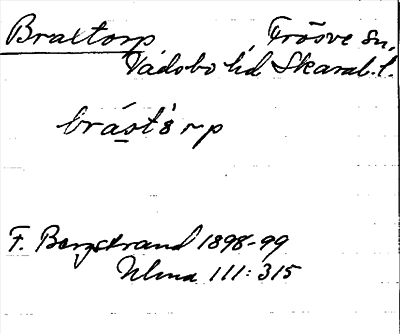 Braxtorp Fröove sn,
Vadsbo hd Skarab. l.
bråst`år̄p
F. Bergstrand 1898-99
Ulma 111:315